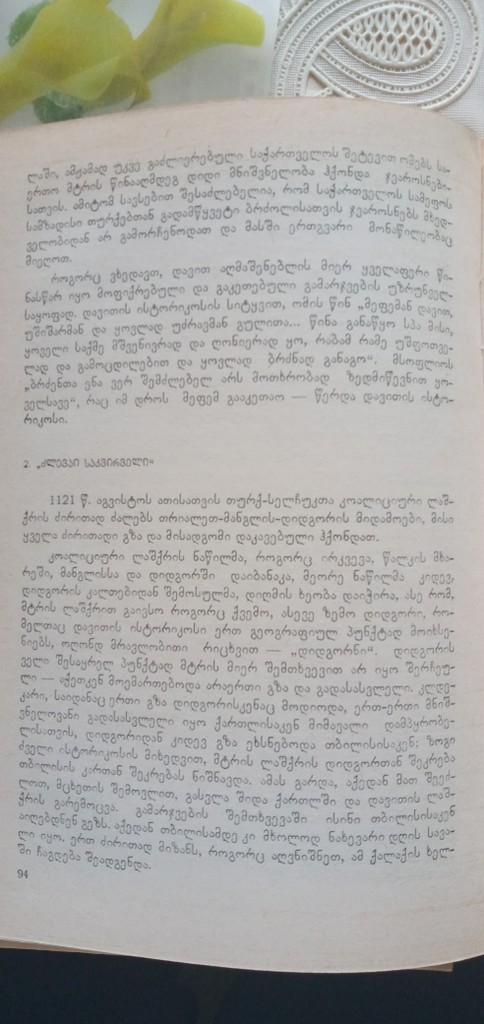 ლაში, ამჟამად უკვე გაძლიერებული საქართველოს შეტევით ომებს სა-
ერთო მტრის წინააღმდეგ დიდი მნიშვნელობა ჰქონდა ჯვაროსნები-
სათვის. ამიტომ სავსებით შესაძლებელია, რომ საქართველოს სამეფოს
სამზადისი თურქებთან გადამწყვეტი ბრძოლისათვის ჯვაროსნებს მხედ-
ველობიდან არ გამორჩენოდათ და მასში ერთგვარი მონაწილეობაც
მიეღოთ.
როგორც ვხედავთ, დავით აღმაშენებლის მიერ ყველაფერი წი-
ნასწარ იყო მოფიქრებული და გაკეთებული გამარჯვების უზრუნველ-
საყოფად. დავითის ისტორიკოსის სიტყვით, ომის წინ „მეფემან დავით,
უშიშარმან და ყოვლად უძრავმან გულითა... წინა განაწყო სპა მისი,
ყოველი საქმე მშვენიერად და ღონიერად ყო, რაბამ რამე უშფოთვე-
ლად და გამოცდილებით და ყოვლად ბრძნად განაგო“. მსოფლიოს
„ბრძენთა ენა ვერ შემძლებელ არს მოთხრობად ზედმიწევნით ყო-
ველსავე“, რაც იმ დროს მეფემ გააკეთაო — წერდა დავითის ისტო-
რიკოსი.
2. „ძლევაი საკვირველი“
1121 წ. აგვისტოს ათისათვის თურქ-სელჩუკთა კოალიციური ლაშ-
ქრის ძირითად ძალებს თრიალეთ-მანგლის-დიდგორის მიდამოები, მისი
ყველა ძირითადი გზა და მისადგომი დაკავებული ჰქონდათ.
კოალიციური ლაშქრის ნაწილმა, როგორც ირკვევა, წალკის მხა-
რეში, მანგლისსა და დიდგორში დაიბანაკა, მეორე ნაწილმა კიდევ,
დიდგორის კალთებიდან შემოსულმა, დიღმის ხეობა დაიჭირა, ასე რომ,
მტრის ლაშქრით გაივსო როგორც ქვემო, ასევე ზემო დიდგორი, რო-
მელთაც დავითის ისტორიკოსი ერთ გეოგრაფიულ პუნქტად მოიხსე-
ნიებს, ოღონდ მრავლობითი რიცხვით — „დიდგორნი“. დიდგორის
ველი შესაყრელ პუნქტად მტრის მიერ შემთხვევით არ იყო შერჩეუ-
ლი — აქეთკენ მოემართებოდა არაერთი გზა და გადასასვლელი. კლდე-
კარი, საიდანაც ერთი გზა დიდგორისკენაც მოდიოდა, ერთ-ერთი მნიშ-
ვნელოვანი გადასასვლელი იყო ქართლისაკენ მიმავალი დამპყრობე-
ლისათვის, დიდგორიდან კიდევ გზა ეხსნებოდა თბილისისაკენ; ზოგი
ძველი ისტორიკოსის მიხედვით, მტრის ლაშქრის დიდგორთან შეკრება
თბილისის კართან შეკრებას ნიშნავდა. ამას გარდა, აქედან მათ შეეძ-
ლოთ, მცხეთის შემოვლით, გასვლა შიდა ქართლში და დავითის ლაშ-
ქრის გარემოცვა. გამარჯვების შემთხვევაში ისინი თბილისისაკენ
აიღებდნენ გეზს. აქედან თბილისამდე კი მხოლოდ ნახევარი დღის სავა-
ლი იყო. ერთ ძირითად მიზანს, როგორც აღვნიშნეთ, ამ ქალაქის ხელ-
ში ჩაგდება შეადგენდა.
94